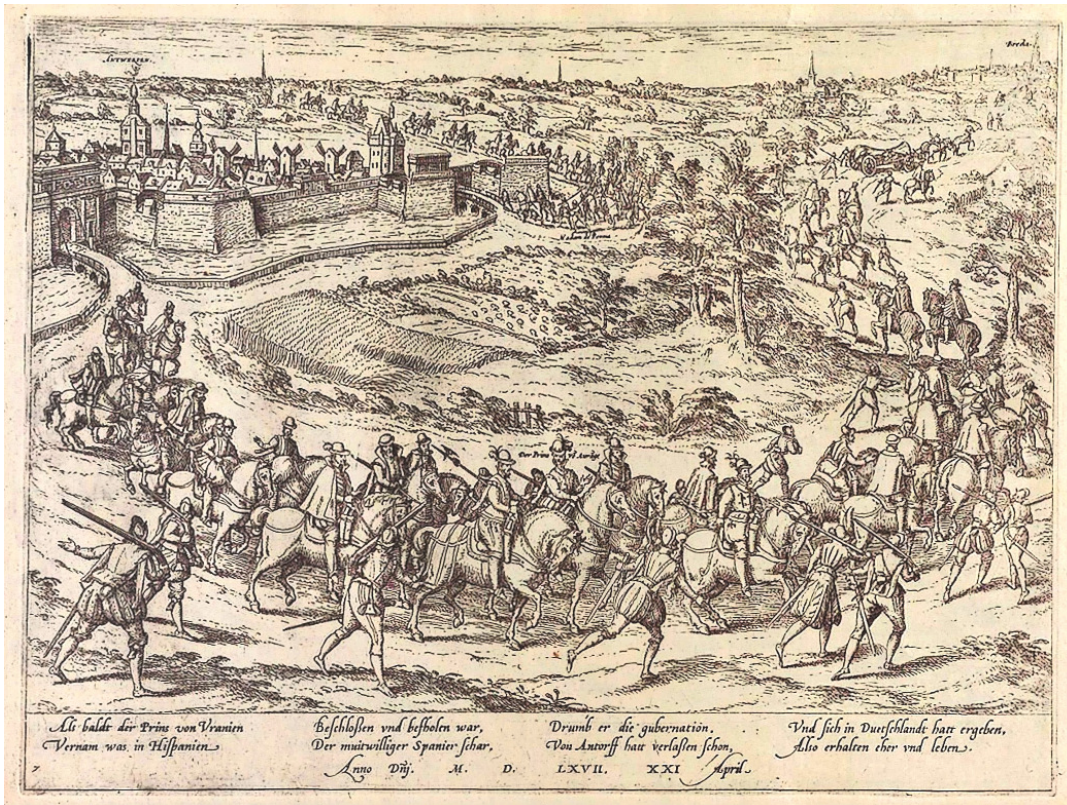 ANTWERPEN.
Breda.
Der Prins
Als baldt der Prins von Vranien
Vernam was, in Hispanien
Beschloßen vnd befholen war,
Der muitwilliger Spanier schar,
Drumb er die gubernation.
Von Antorff hatt verlaßen schon,
Vnd sich in Duetschlandt hatt ergeben,
Also erhalten eher vnd leben.
Anno Dnj. M. D. LXVII. XXI April.
7